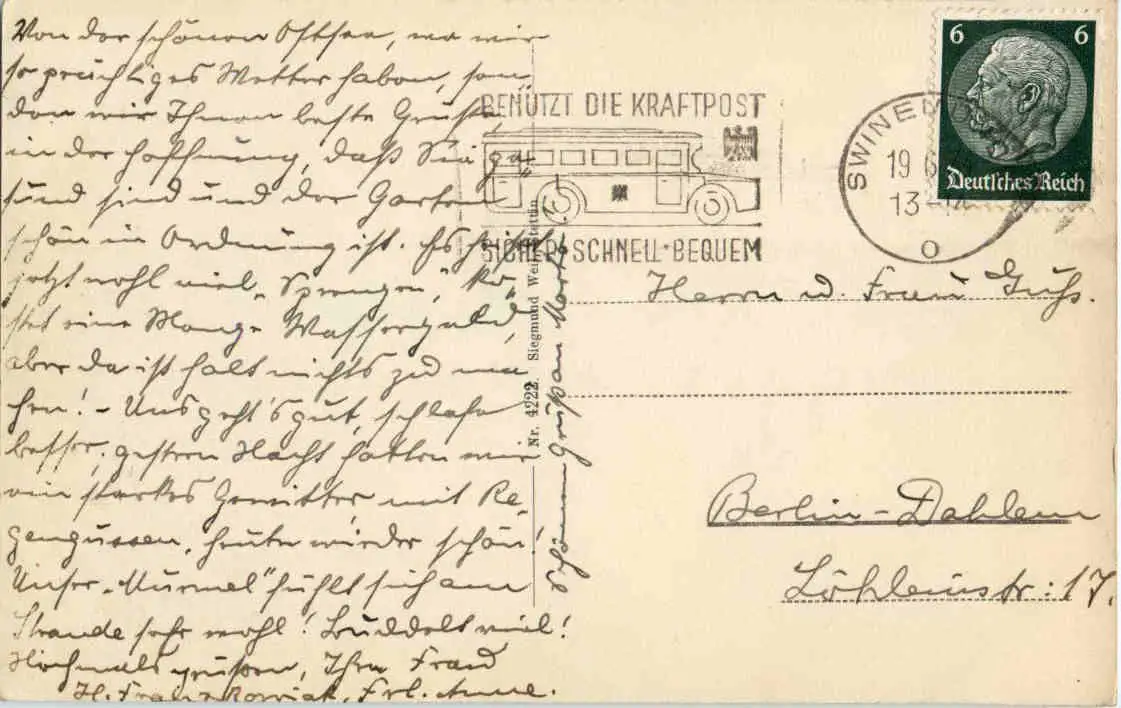 Von der schönen Ostsee, wo wir
so prächtiges Wetter haben, sen
den wir Ihnen beste Grüße,
in der Hoffnung, daß Sie ge-
sund sind und der Garten
schön in Ordnung ist. Es heißt
jetzt wohl viel „Sprengen", ko-
stet eine Menge Wassergeld,
aber da ist halt nichts zu ma
chen! - Uns geht's gut, schlafe
besser, gestern Nacht hatten wir
ein starkes Gewitter mit Re-
gengüssen, heute wieder schön!
Unser „Murmel" fühlt sich am
Strande sehr wohl! Buddelt viel!
Nochmals grüßen, Ihre Frau
H. Frl. Anne.
Schönen Gruß an
Nr. 4222. Siegmund Stettin
BENÜTZT DIE KRAFTPOST
SICHER·SCHNELL·BEQUEM
SWINEMÜ
19 6
13-14
o
6 6
Deutsches Reich
Herrn u. Frau
Berlin-Dahlem
Löhleinstr: 17.